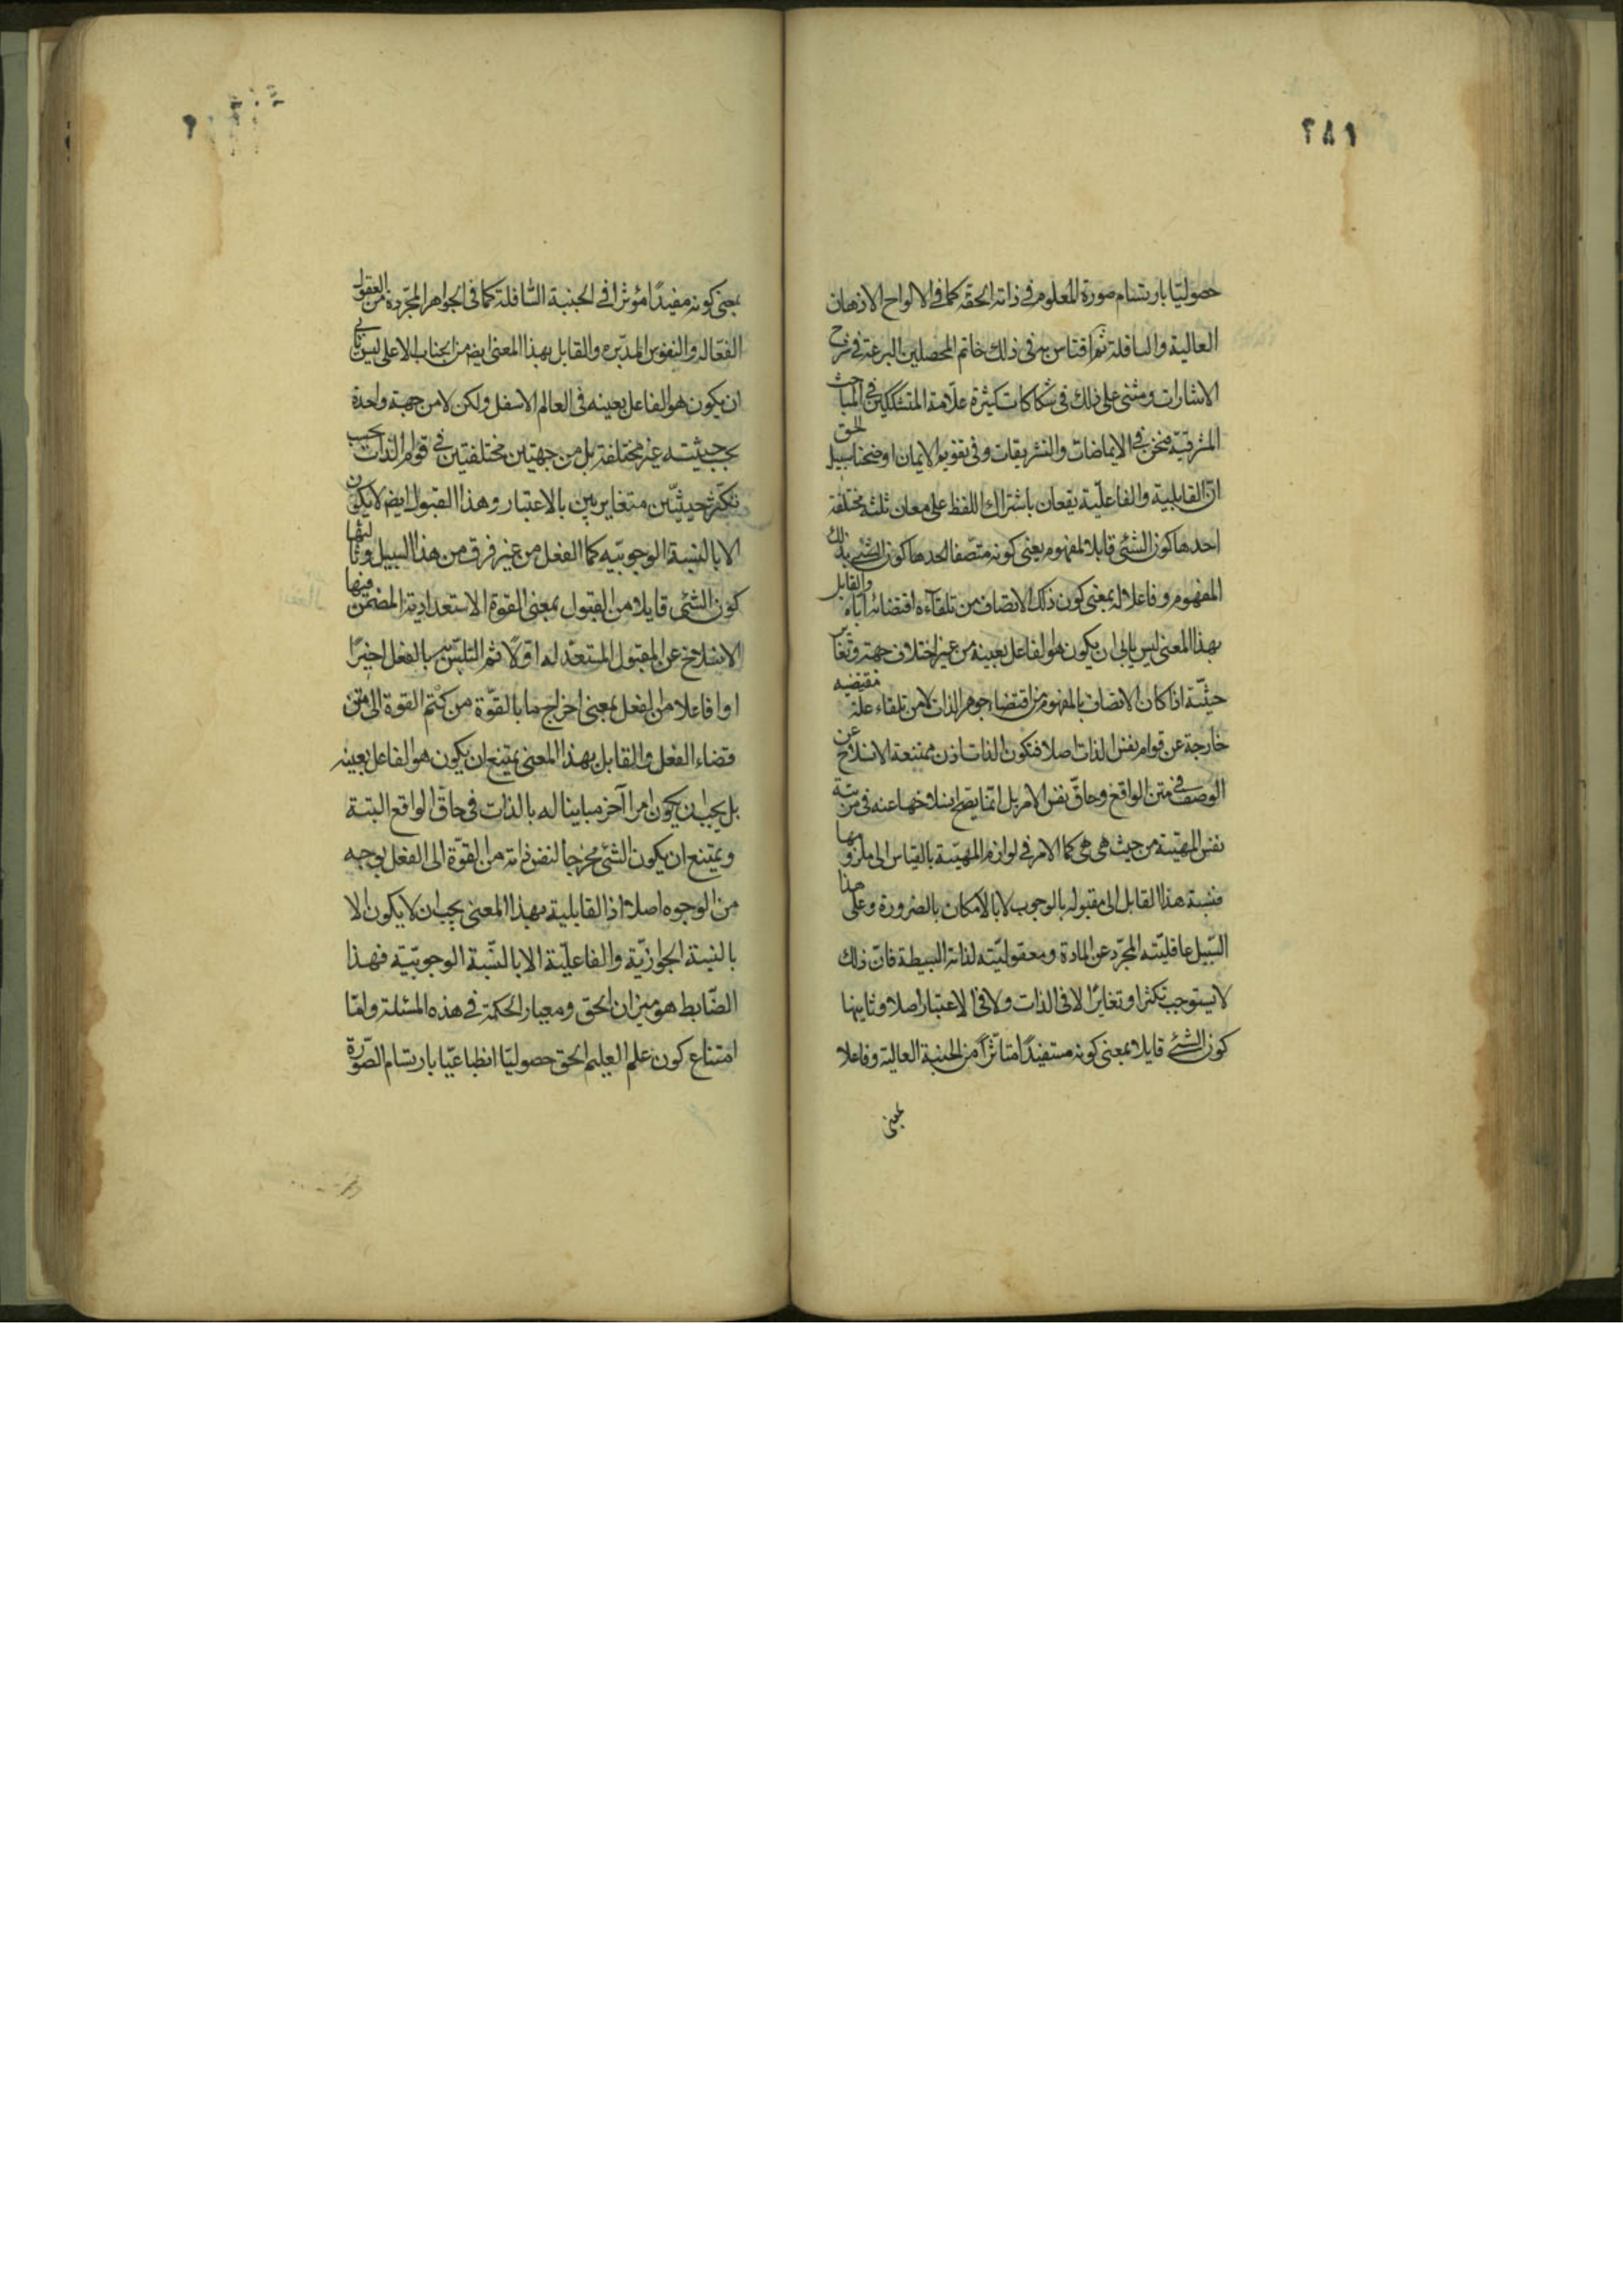 ٢٨١
حصوليّا بارتسام صورة المعلوم فى ذاته الحقه كما فى الالواح الاذهان
العالية والسافلة ثم اقتاس به فى ذلك خاتم المحصلين البرعة فى شرح
الاشارات ومشى على ذلك فى شكاكات كثيرة علّامة المتشككين فى المباحث
المشرقيّة فنحن فى الايماضات والتشريقات وفى تقويم الايمان اوضحنا سبيل الحق
انّ القابلية والفاعليّة يقعان باشتراك اللفظ على معان ثلثه مختلفة
احدها كون الشئ قابلا لمفهوم بمعنى كونه متّصفا احدها كون الشئ بذلك
المفهوم وفاعلا له بمعنى كون ذلك الاتصاف من تلقآء اقتضائه اياه والقابل
بهذا المعنى ليس يابى ان يكون هو الفاعل بعينه من غير اختلاف جهته وتغاير
حيثيّة اذا كان الاتصاف بالمفهوم من اقتضاء جوهر الذات لا من تلقاء علة مقتضيه
خارجة عن قوام نفس الذات اصلا فتكون الذات اذن ممتنعة الانسلاخ عن
الوصف فى متن الواقع وحاقّ نفس الامر بل انما يصح انسلاخها عنه فى مرتبة
نفس المهيّة من حيث هى هى كما الامر فى لوازم المهيّة بالقياس الى ملزومها
فنسبة هذا القابل الى مقبوله بالوجوب لا بالامكان بالضرورة وعلى هذا
السّبيل عاقليّته المجرّد عن المادة ومعقوليّته لذاته البسيطة فانّ ذلك
لا يستوجب تكثرا وتغايرًا لا فى الذات ولا فى الاعتبار اصلا وثانيها
كون الشئ قابلا بمعنى كونه مستفيدًا متاثرًا من الجنبة العالية وفاعلا
بمعنى
بمعنى كونه مفيدًا مؤثرا فى الجنبة السّافلة كما فى الجواهر المجرّدة من العقول
الفعّاله والنفوس المدبّره والقابل بهذا المعنى ايض من الجناب الاعلى ليس يابى
ان يكون هو الفاعل بعينه فى العالم الاسفل ولكن لا من جهة واحدة
بحيثيته غير مختلفة بل من جهتين مختلفتين فى قوام الذات بحسب
تكثّر حيثيّتين متغايرتين بالاعتبار وهذا القبول ايض لا يكون
الا بالنسبة الوجوبيّه كما الفعل من غير فرق من هذا السبيل وثالثها
كون الشئ قابلا من القبول بمعنى القوة الاستعداديّة المضمّن فيها
الانسلاخ عن المقبول المستعدّ له اوّلا ثم التلبّس به بالفعل اخيرًا
او فاعلا من الفعل بمعنى اخراج ما بالقوّة من كتم القوة الى متن
قضاء الفعل والقابل بهذا المعنى يمتنع ان يكون هو الفاعل بعينه
بل يجب ان يكون امرا آخر مباينا له بالذات فى حاقّ الواقع البتة
ويمتنع ان يكون الشئ مخرجا لنفس ذاته من القوّة الى الفعل بوجه
من الوجوه اصلا اذ القابلية بهذا المعنى يجب ان لا يكون الا
بالنسبة الجوازيّة والفاعليّة الا بالنّسبة الوجوبيّة فهذا
الضّابط هو ميزان الحق ومعيار الحكمة فى هذه المسئلة وامّا
امتناع كون علم العليم الحق حصوليّا انطباعيّا بارتسام الصّورة